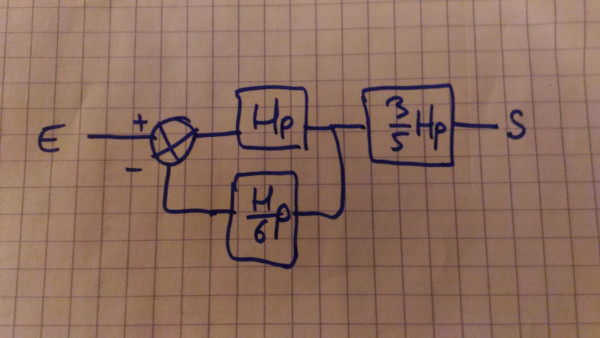 +
E Hp 3/5 Hp S
-
H/6 p